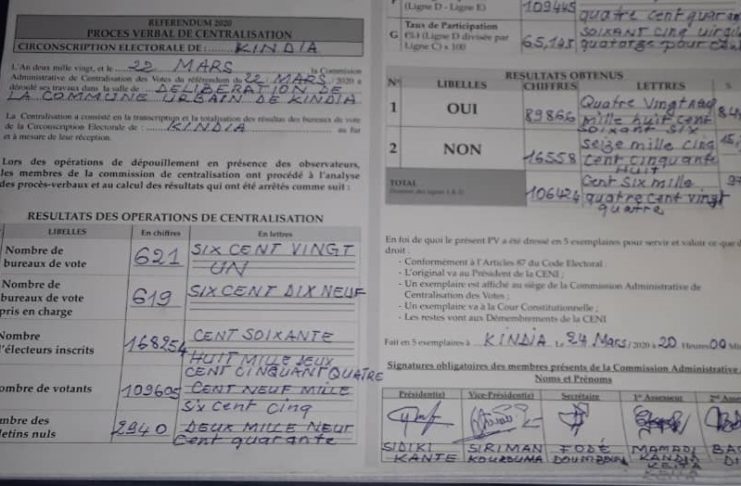 REFERENDUM 2020
PROCES VERBAL DE CENTRALISATION
CIRCONSCRIPTION ELECTORALE DE : KINDIA
L'An deux mille vingt, et le 22 MARS la Commission
Administrative de Centralisation des Votes du référendum du 22 MARS / 2020 a
déroulé ses travaux dans la salle de DELIBERATION DE
LA COMMUNE URBAIN DE KINDIA
La Centralisation a consisté en la transcription et la totalisation des résultats des bureaux de vote
de la Circonscription Electorale de : KINDIA au fur
et à mesure de leur réception.
Lors des opérations de dépouillement en présence des observateurs,
les membres de la commission de centralisation ont procédé à l'analyse
des procès-verbaux et au calcul des résultats qui ont été arrêtés comme suit :
RESULTATS DES OPERATIONS DE CENTRALISATION
LIBELLES En chiffres En lettres
Nombre de
bureaux de vote 621 SIX CENT VINGT
UN
Nombre de
bureaux de vote
pris en charge 619 SIX CENT DIX NEUF
Nombre
d'électeurs inscrits 168254 CENT SOIXANTE
HUIT MILLE DEUX
CENT CINQUANT QUATRE
ombre de votants 109605 CENT NEUF MILLE
Six Cent Cinq
mbre des
letins nuls 2940 DEUX MILLE NEUF
Cent quarante
(Ligne D - Ligne E) 109445 quatre cent quaran
G Taux de Participation
(%) (Ligne D divisée par
Ligne C) x 100 65,145 SOIXANT CINQ VIRGIL
quatorze pour
RESULTATS OBTENUS
N° LIBELLES CHIFFRES LETTRES
1 OUI 89866 Quatre Vingt
Mille huit Cent
Soixant Six
2 NON 16558 Seize mille cinq
Cent cinquante
HUIT
TOTAL
106424 Cent Six mille
quatre cent vingt
quatre
En foi de quoi le présent PV a été dressé en 5 exemplaires pour servir et valoir ce que d
droit :
- Conformément à l'Articles 87 du Code Electoral
- L'original va au Président de la CENI ;
- Un exemplaire est affiché au siège de la Commission Administrative de
Centralisation des Votes ;
- Un exemplaire va à la Cour Constitutionnelle ;
- Les restes vont aux Démembrements de la CENI
Fait en 5 exemplaires à KINDIA Le 24 Mars / 2020 à 20 Heures 00 Mi
Signatures obligatoires des membres présents de la Commission Administrative
Noms et Prénoms
Président(e) Vice-Président(e) Secrétaire 1er Assesseur 2ème Asse
SIDIKI SIRIMAN FODÉ MAMADI BA
KANTE KOUROUMA DOUMBOUYA KANDIA
KEITA